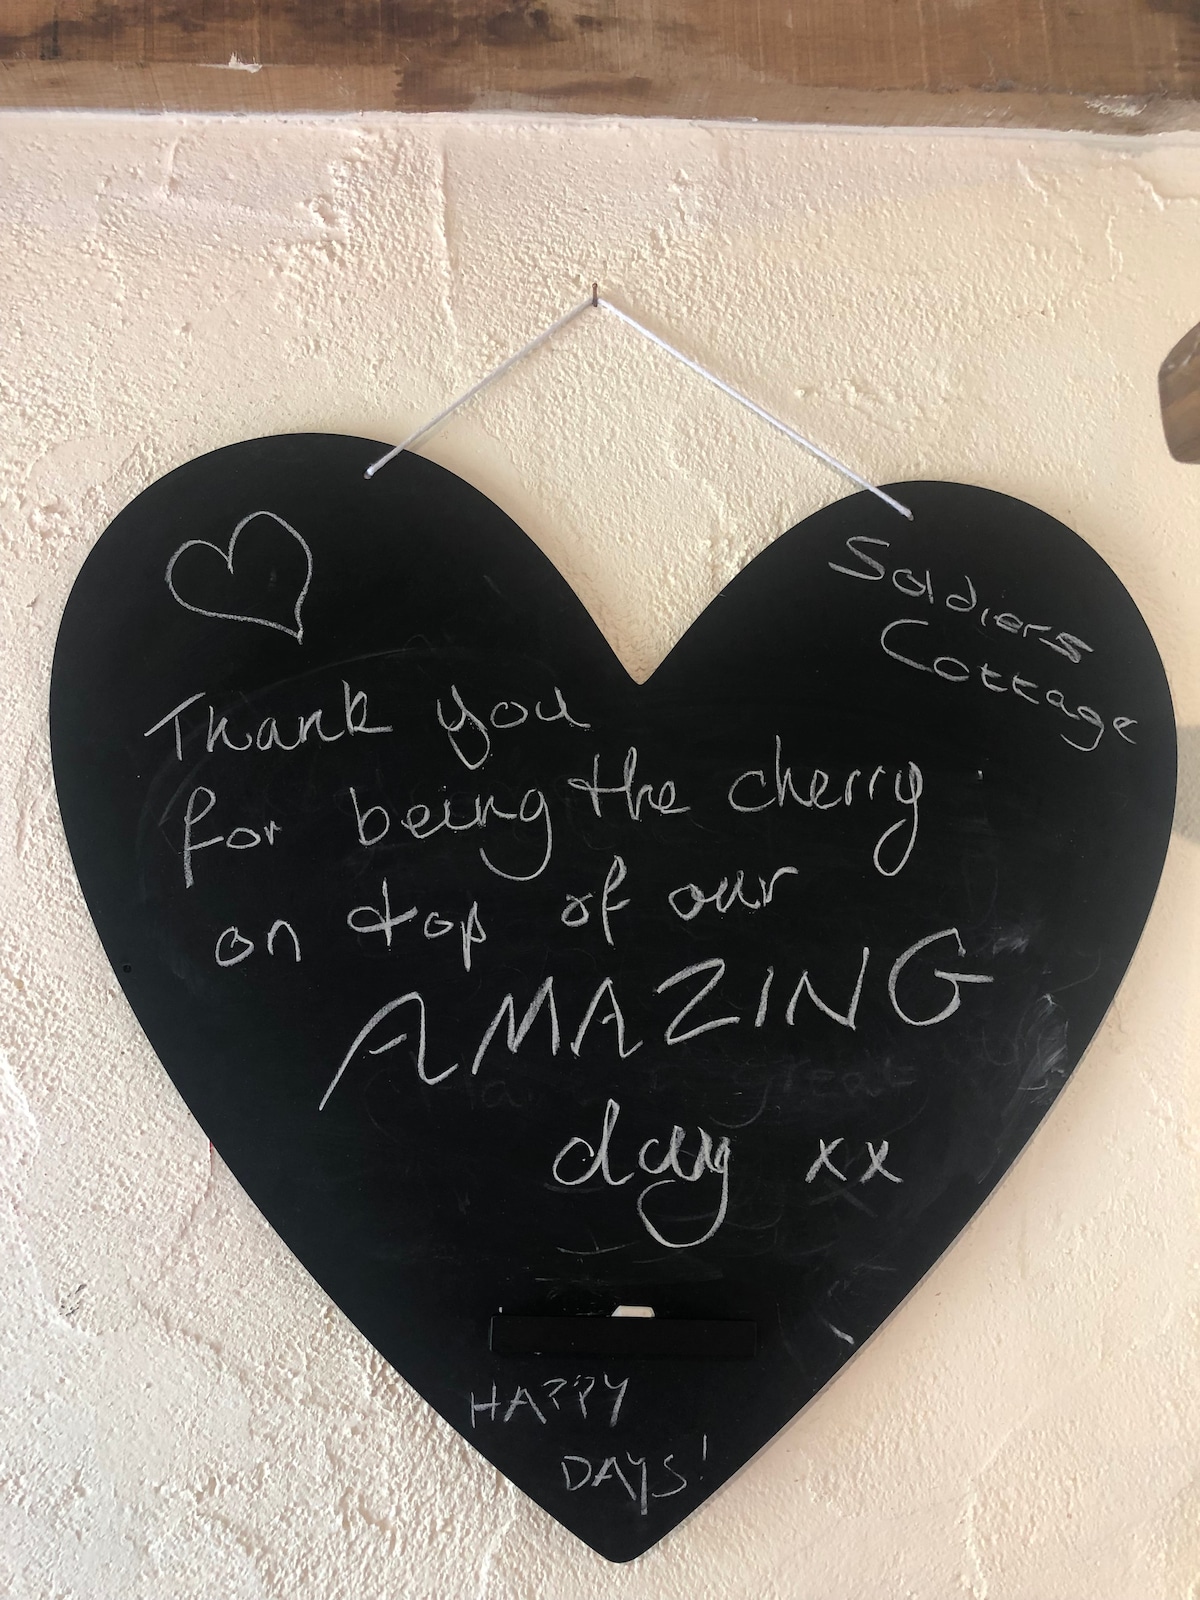 Soldiers
Cottage
Thank you
for being the cherry
on top of our
AMAZING
day xx
HAPPY
DAYS!